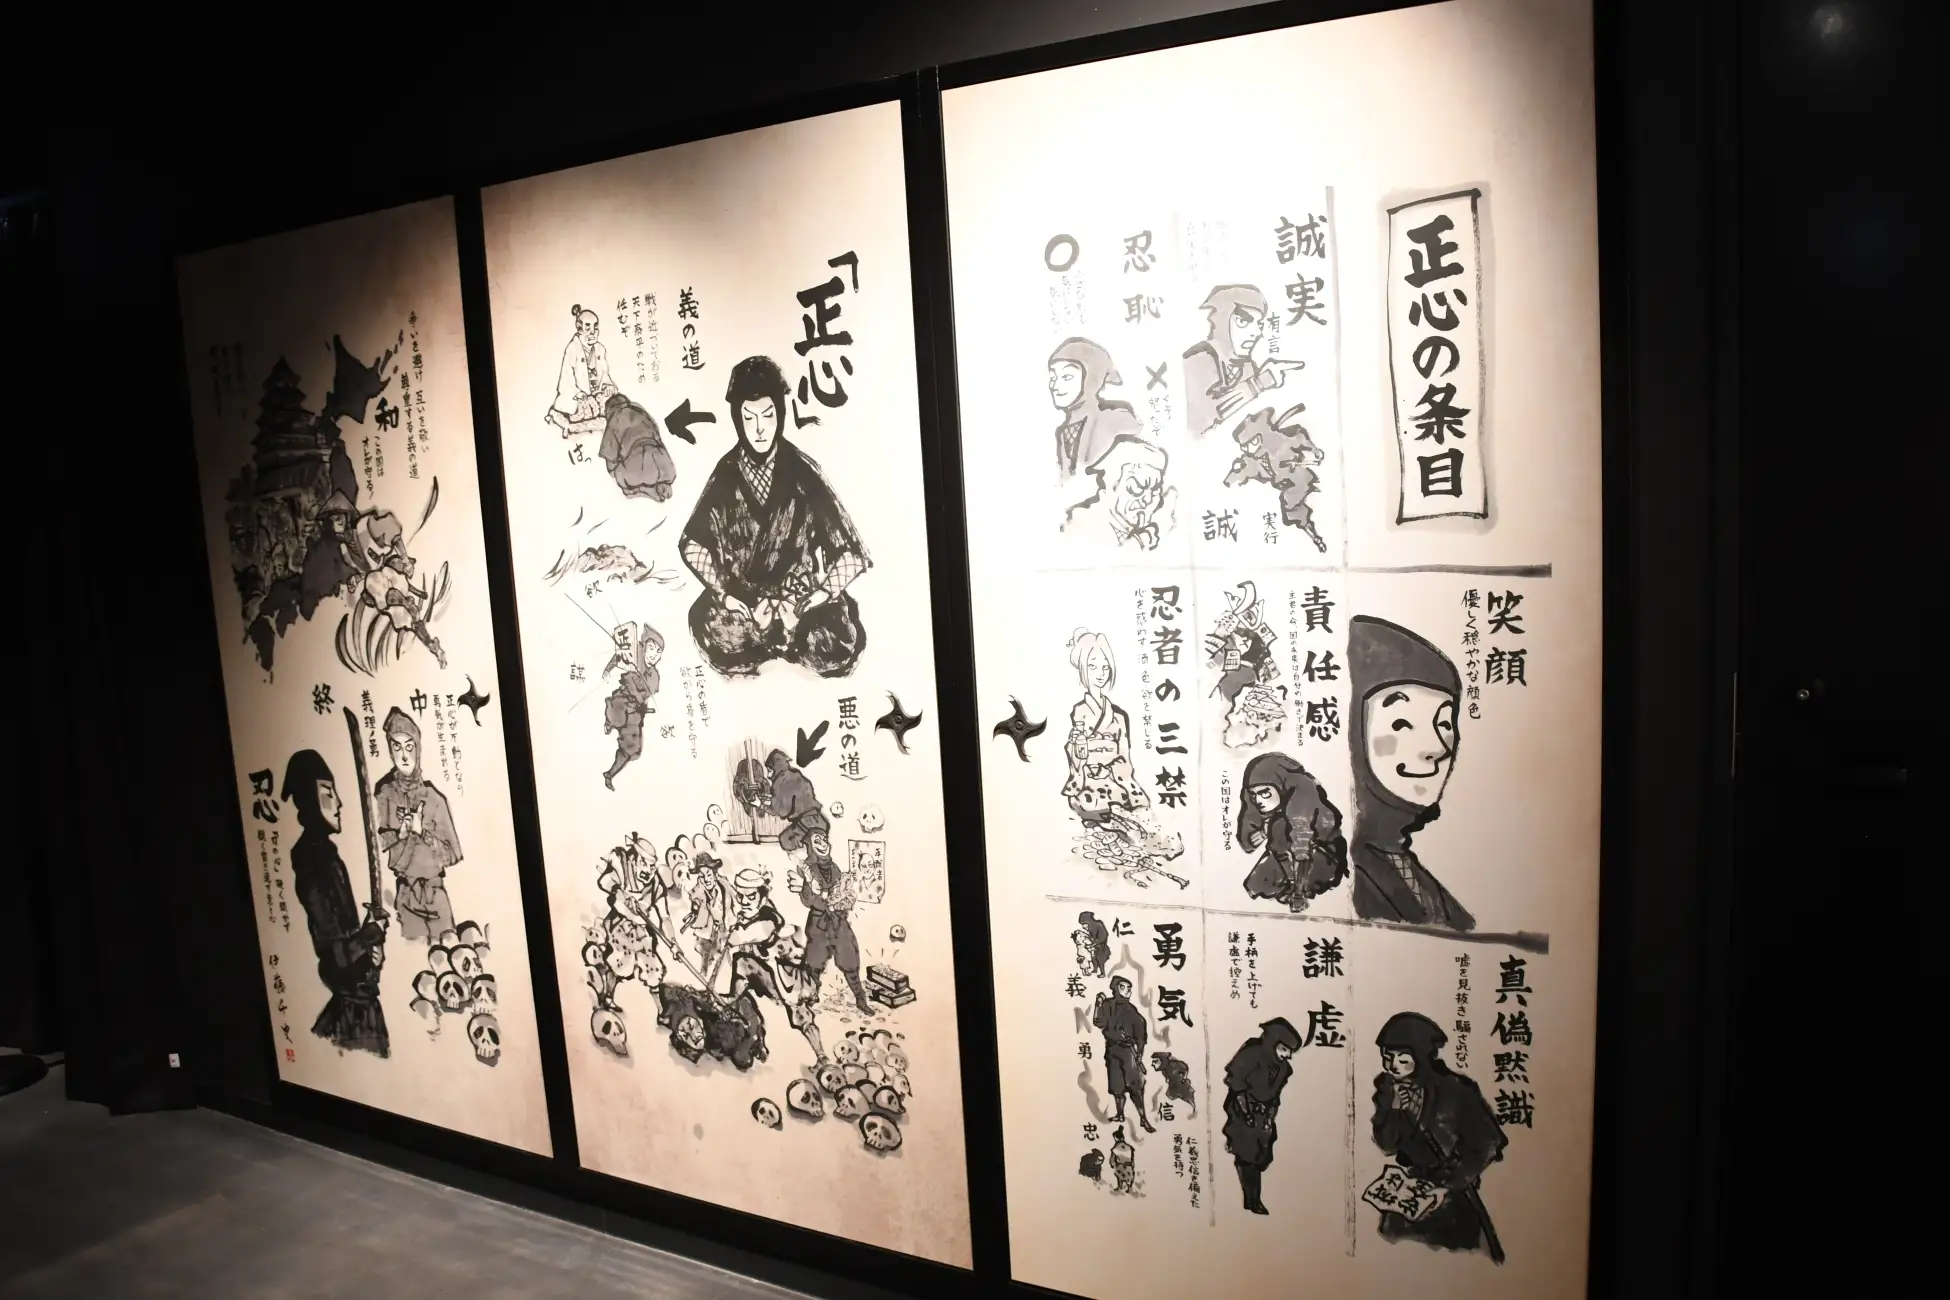 正心の条目
笑顔
優しく穏やかな顔色
真偽黙識
嘘を見抜き騙されない
誠実
有言
実行
誠
責任感
この国はオレが守る
謙虚
手柄を上げても
謙虚で控えめ
忍恥
○
×
忍者の三禁
心を惑わす酒色欲を禁じる
勇気
仁
義
勇
信
忠
仁義忠信を備えた
勇気を持つ
「正心」
義の道
戦が近づいておる
天下泰平のため
任むぞ
はっ
欲
正心
謀
欲
正心の盾で
欲から身を守る
悪の道
争いを避け互いを敬い
尊重する義の道
和
この国は
オレが守る!
中
正心が不動となり
勇気が生まれる
義理ノ勇
終
忍
伊藤千史